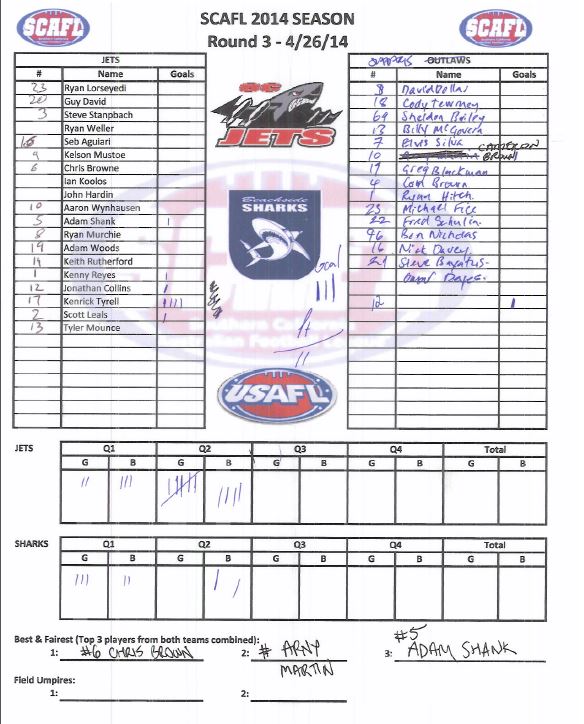 SCAFL
SCAFL 2014 SEASON
SCAFL
Round 3 - 4/26/14
JETS
OUTLAWS
# Name Goals
# Name Goals
23 Ryan Lorseyedi
20 Guy David
3 Steve Stanpbach
Ryan Weller
Seb Aguiari
9 Kelson Mustoe
6 Chris Browne
Ian Koolos
John Hardin
10 Aaron Wynhausen
5 Adam Shank I
8 Ryan Murchie
19 Adam Woods
14 Keith Rutherford
1 Kenny Reyes I
12 Jonathan Collins I
17 Kenrick Tyrell IIII
2 Scott Leals I
13 Tyler Mounce
OC
JETS
Beachside
SHARKS
Goal
III
II
USAFL
8 David Dollar
18 Cody Tewmey
69 Sheldon Bailey
13 Billy McGovern
7 Elvis Silva
10 CAMERON BROWN
19 Greg Blackman
4 Cam Brown
1 Ryan Hitch
23 Michael Fice
22 Fred Schulin
46 Ben Nicholas
16 Nick Davey
21 Steve
12 I
JETS
Q1 Q2 Q3 Q4 Total
G B G B G B G B G B
II III IIII IIII
SHARKS
Q1 Q2 Q3 Q4 Total
G B G B G B G B G B
III II I I
Best & Fairest (Top 3 players from both teams combined):
1: #6 CHRIS BROWN 2: # ARNY MARTIN 3: #5 ADAM SHANK
Field Umpires:
1: 2: